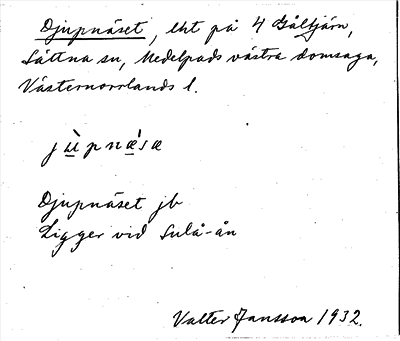 Djupnäset, lht på 4 Gåltjärn,
Sättna sn, Medelpads västra domsaga,
Västernorrlands l.
jùpnæ'sæ
Djupnäset jb
Ligger vid Sulå-ån
Valter Jansson 1932.